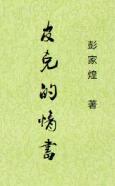 皮克的情書
彭家煌 著